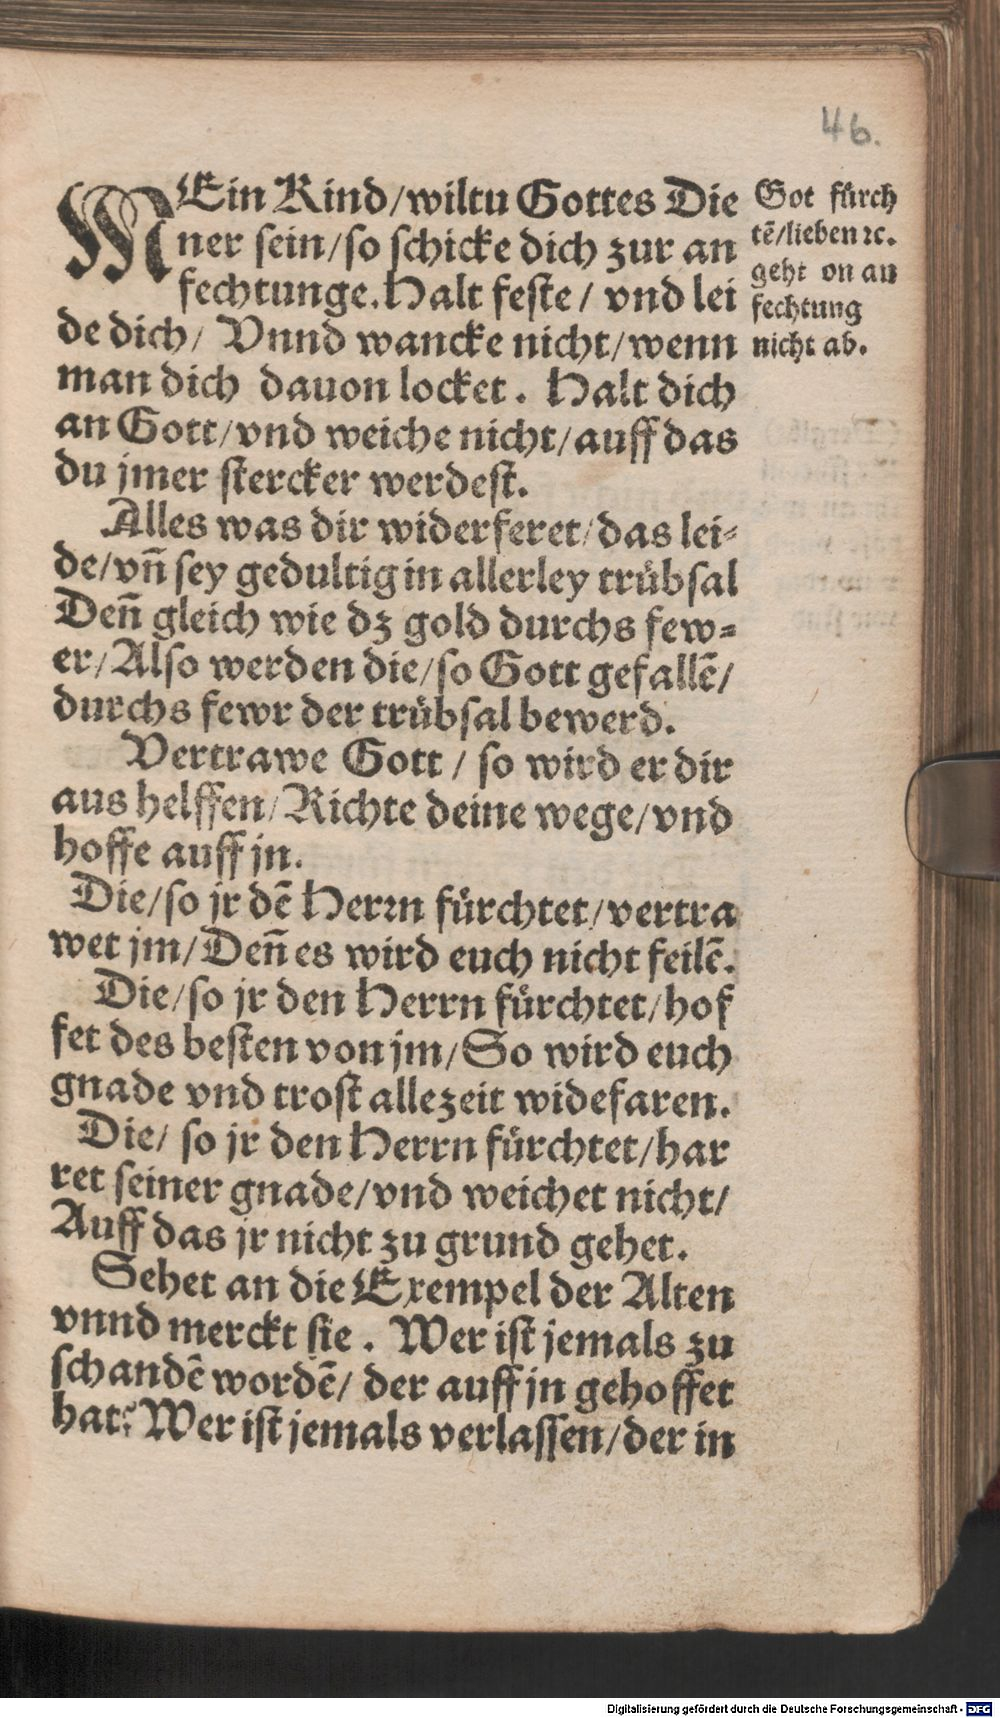 46.
MEin Kind/wiltu Gottes Die
ner sein/so schicke dich zur an
fechtunge.Halt feste/ vnd lei
de dich/ Vnnd wancke nicht/wenn
man dich dauon locket. Halt dich
an Gott/vnd weiche nicht/auff das
du jmer stercker werdest.
Alles was dir widerferet/das lei-
de/vn̄ sey gedultig in allerley trübsal
Den̄ gleich wie dz gold durchs few-
er/Also werden die/so Gott gefallē/
durchs fewr der trübsal bewerd.
Vertrawe Gott/ so wird er dir
aus helffen/Richte deine wege/vnd
hoffe auff jn.
Die/so jr dē Herrn fürchtet/vertra
wet jm/Den̄ es wird euch nicht feilē.
Die/so jr den Herrn fürchtet/hof
fet des besten von jm/So wird euch
gnade vnd trost allezeit widefaren.
Die/ so jr den Herrn fürchtet/har
ret seiner gnade/vnd weichet nicht/
Auff das jr nicht zu grund gehet.
Sehet an die Exempel der Alten
vnnd merckt sie. Wer ist jemals zu
schandē wordē/ der auff jn gehoffet
hat? Wer ist jemals verlassen/der in
Got fürch
tē/lieben ꝛc.
geht on an
fechtung
nicht ab.
Digitalisierung gefördert durch die Deutsche Forschungsgemeinschaft - DFG